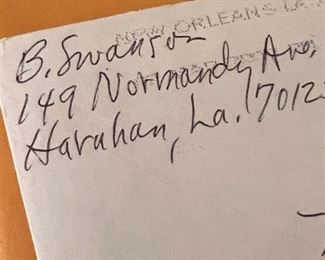 NEW ORLEANS LA
B. Swanson
149 Normandy Ave.
Harahan, La. 7012